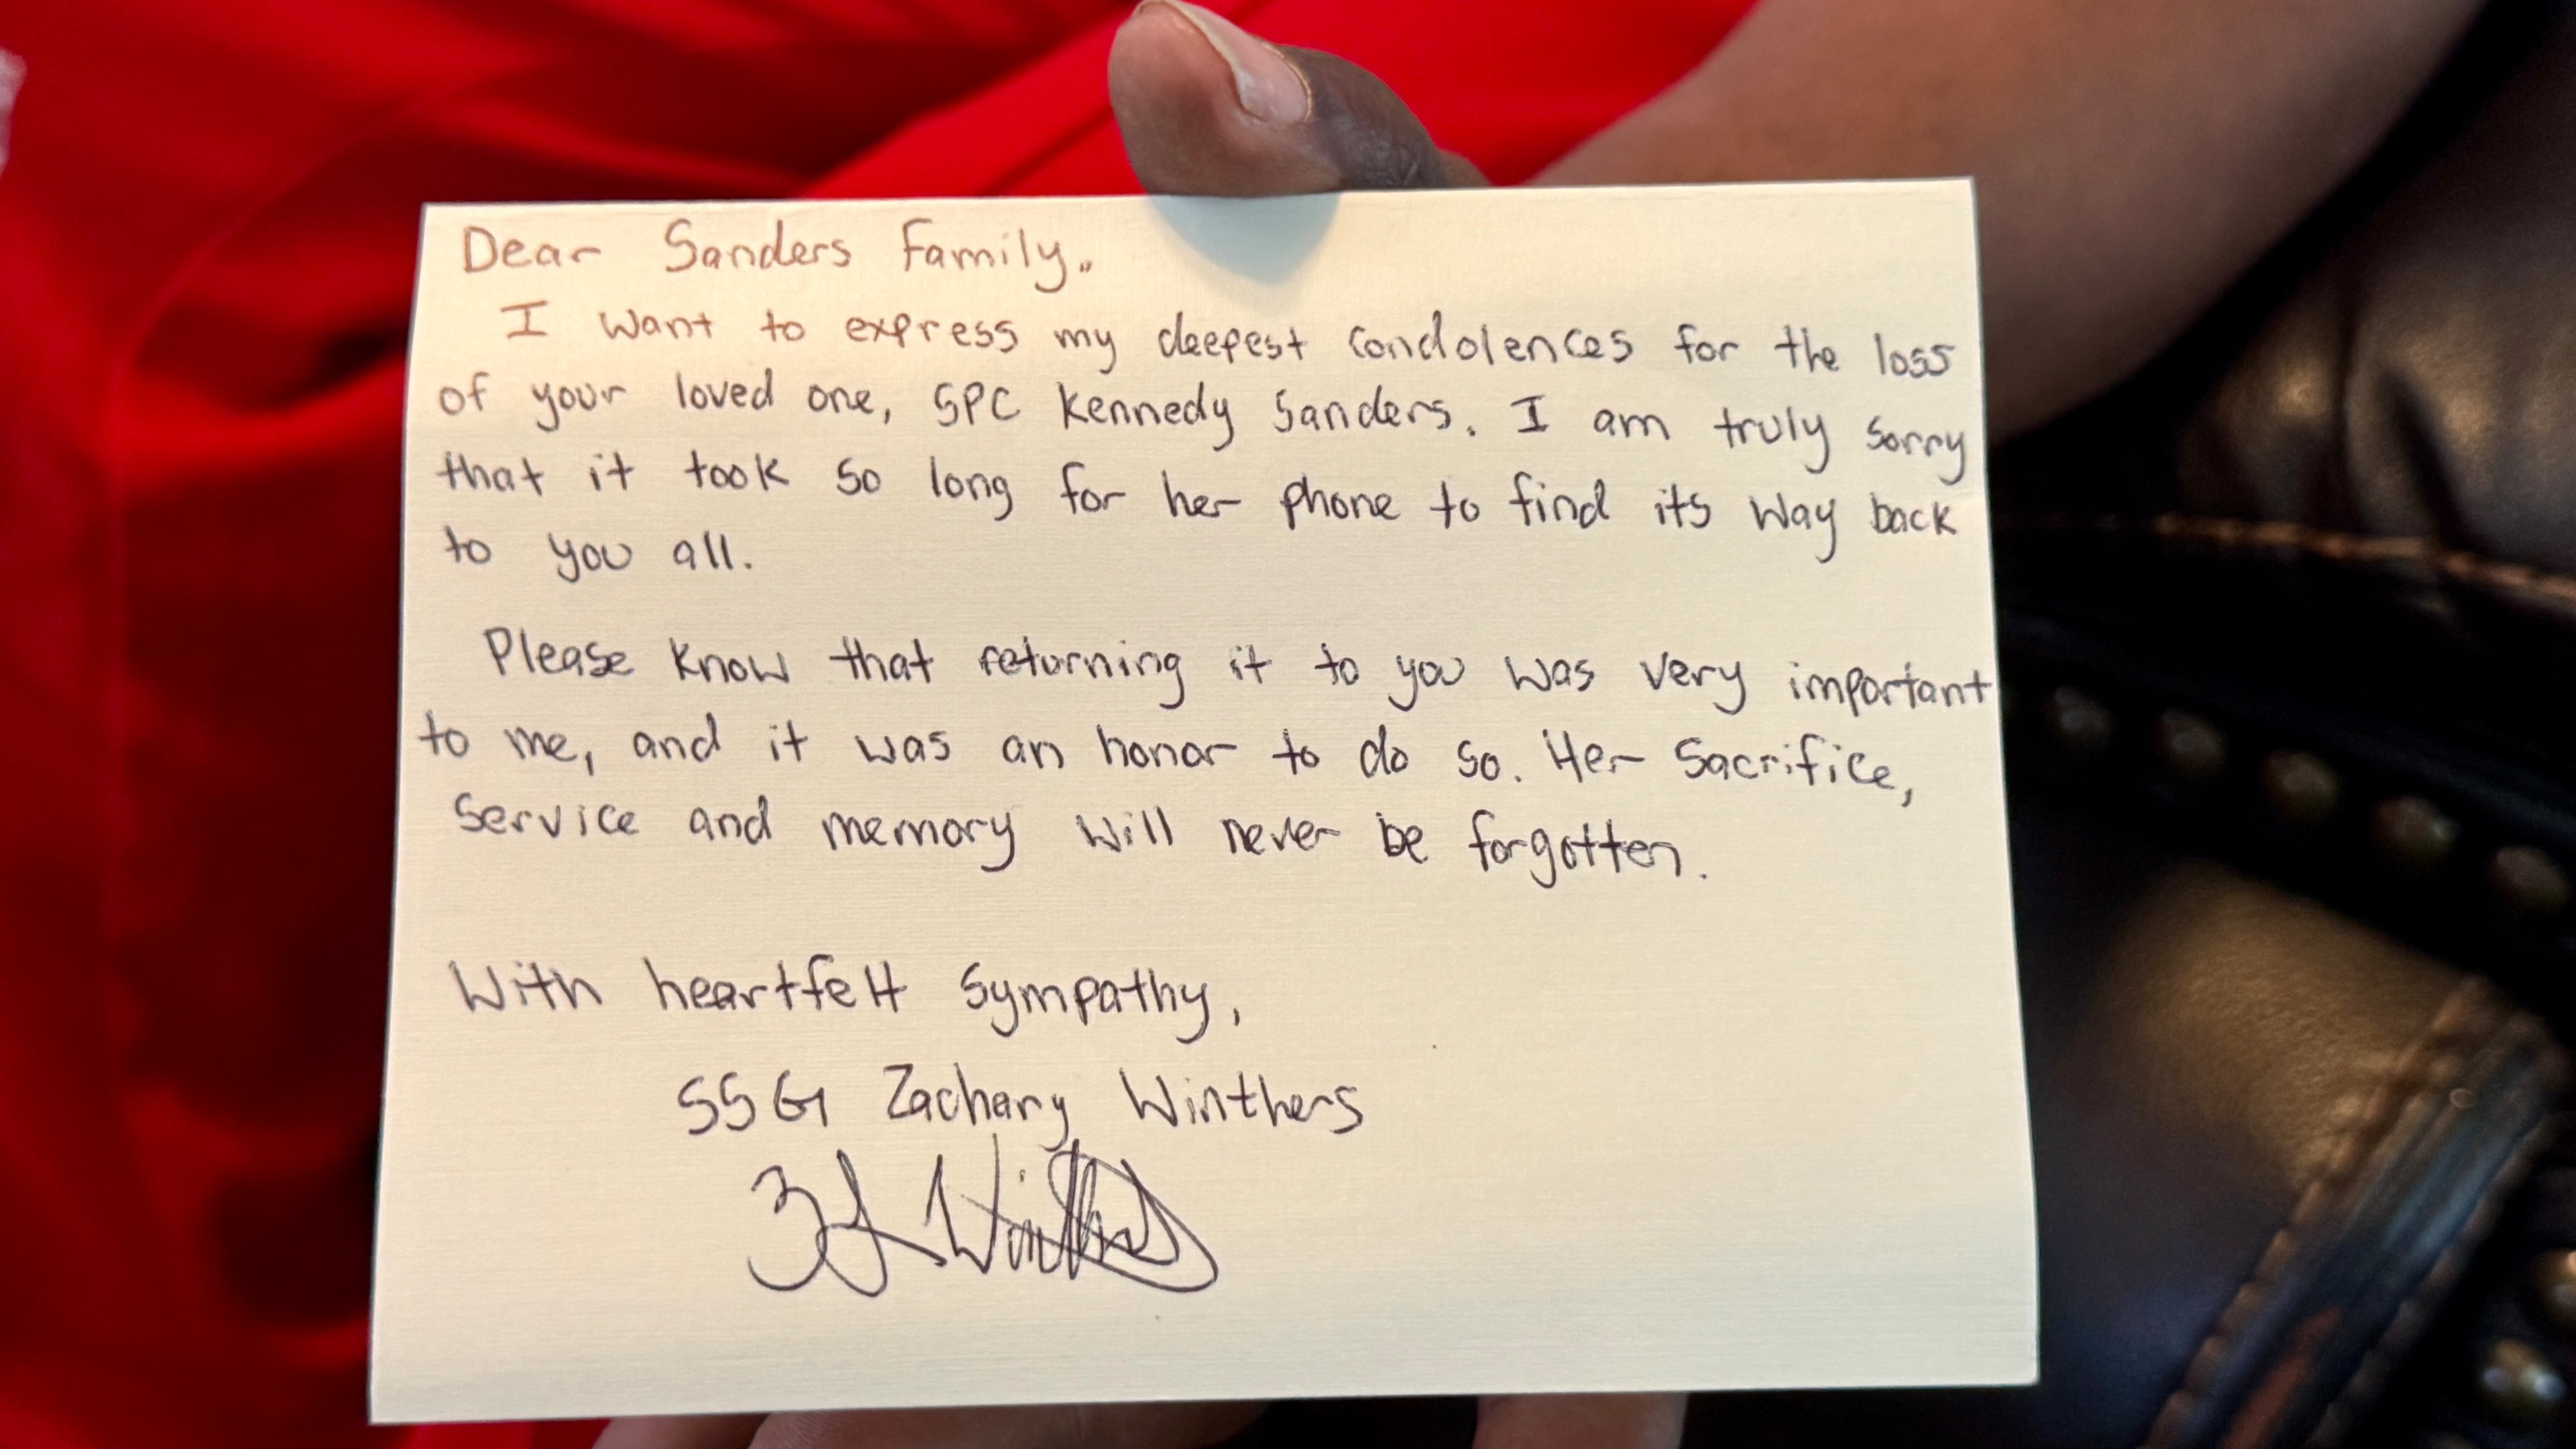 Dear Sanders Family,
I want to express my deepest condolences for the loss
of your loved one, SPC Kennedy Sanders. I am truly sorry
that it took so long for her phone to find its way back
to you all.
Please know that returning it to you was very important
to me, and it was an honor to do so. Her sacrifice,
service and memory will never be forgotten.
With heartfelt sympathy,
SSG Zachary Winthers